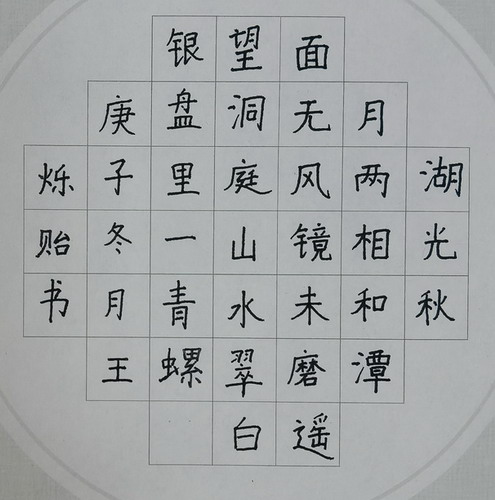 湖光秋
月两相和潭
面无风镜未磨遥
望洞庭山水翠白
银盘里一青螺
庚子冬月王
烁贻书